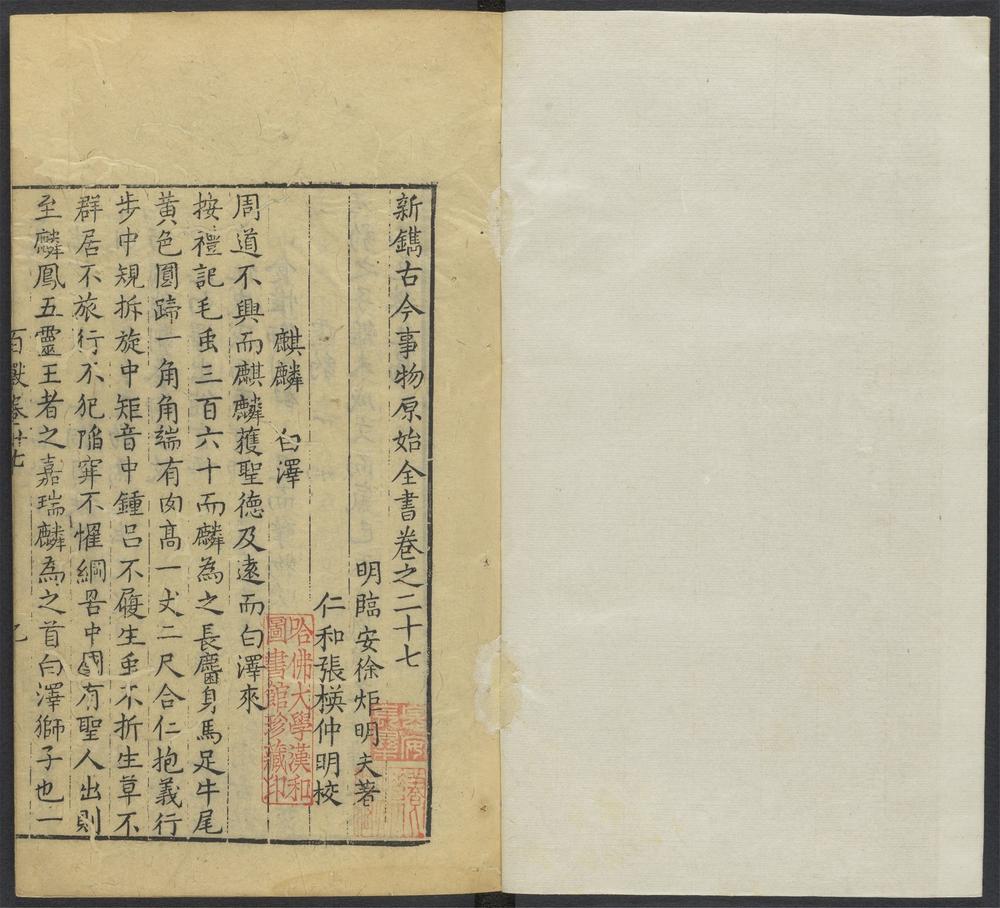 新鐫古今事物原始全書卷之二十七
明臨安徐炬明夫著
仁和張楧仲明校
麒麟　白澤
周道不興而麒麟獲聖德及遠而白澤來
按禮記毛虫三百六十而麟為之長麕身馬足牛尾
黃色圓蹄一角角端有肉高一丈二尺合仁抱義行
步中規折旋中矩音中鍾呂不履生虫不折生草不
群居不旅行不犯陷穽不懼網罟中國有聖人出則
至麟鳳五靈王者之嘉瑞麟為之首白澤獅子也一
百獸卷二十七
哈佛大學漢和
圖書館珍藏印